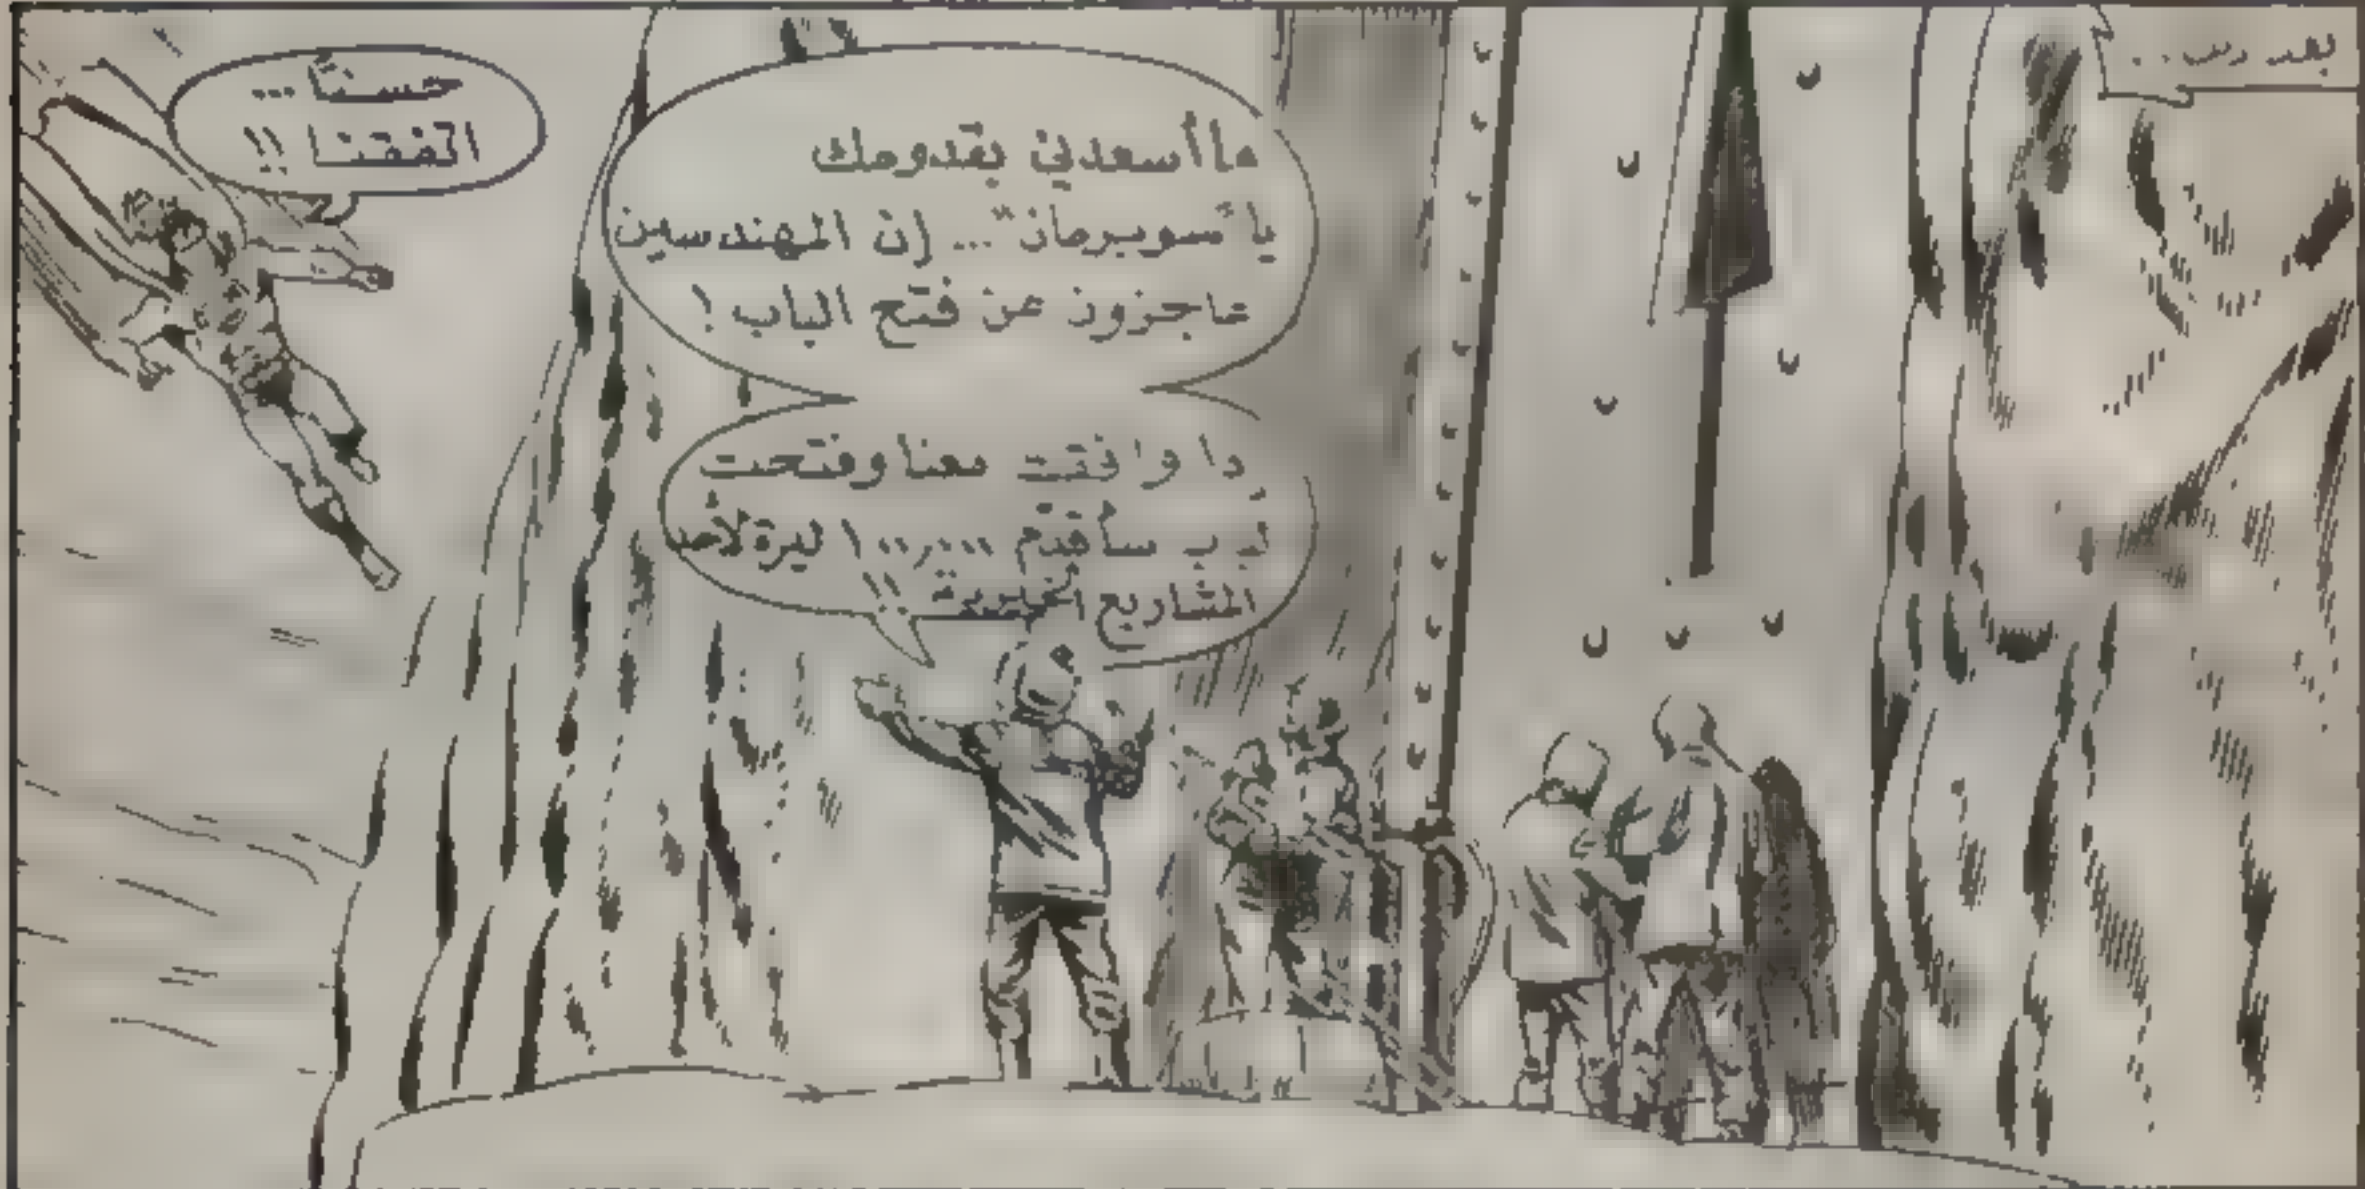 بعد
ما أسعدني بقدومك
يا "سوبرمان"... إن المهندسين
عاجزون عن فتح الباب !
وافقت معنا وفتحت
سأقدّم ١٠٠,٠٠٠ ليرة لأحد
المشاريع الخيرية !!
حسنًا ...
اتفقنا !!